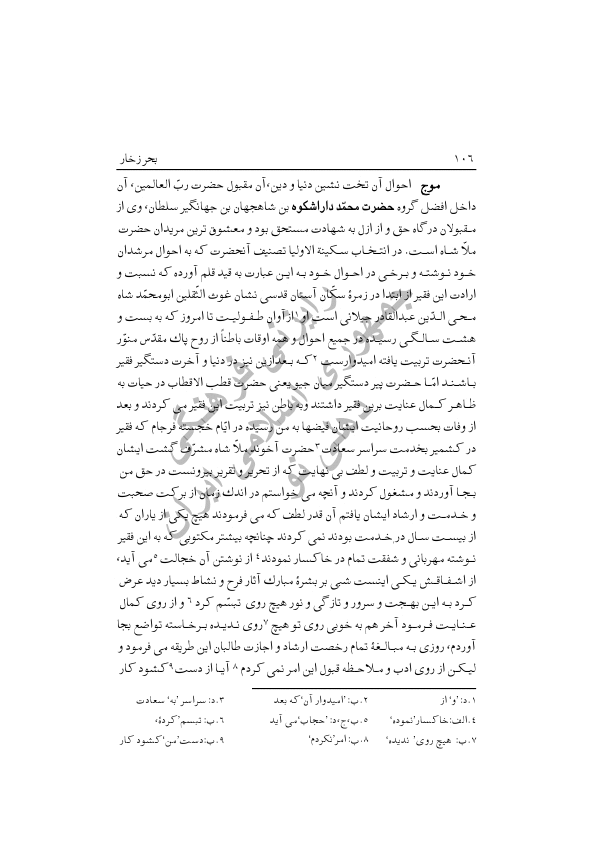 ۱۰۶ بحر زخار
موج احوال آن تخت نشین دنیا و دین،آن مقبول حضرت ربّ العالمین، آن
داخل افضل گروه حضرت محمّد داراشکوه بن شاهجهان بن جهانگیر سلطان، وی از
مقبولان درگاه حق و از ازل به شهادت مستحق بود و معشوق ترین مریدان حضرت
ملاّ شاه است. در انتخاب سکینة الاولیا تصنیف آنحضرت که به احوال مرشدان
خود نوشته و برخی در احوال خود به این عبارت به قید قلم آورده که نسبت و
ارادت این فقیر از ابتدا در زمرۀ سکّان آستان قدسی نشان غوث الثّقلین ابومحمّد شاه
محی الدّین عبدالقادر جیلانی است او۱ ازآوان طفولیت تا امروز که به بست و
هشت سالگی رسیده در جمیع احوال و همه اوقات باطناً از روح پاك مقدّس منوّر
آنحضرت تربیت یافته امیدوارست۲ که بعدازین نیز در دنیا و آخرت دستگیر فقیر
باشند امّا حضرت پیر دستگیر میان جیو یعنی حضرت قطب الاقطاب در حیات به
ظاهر کمال عنایت برین فقیر داشتند وبه باطن نیز تربیت این فقیر می کردند و بعد
از وفات بحسب روحانیت ایشان فیضها به من رسیده در ایّام خجسته فرجام که فقیر
در کشمیر بخدمت سراسر سعادت۳ حضرت آخوند ملاّ شاه مشرّف گشت ایشان
کمال عنایت و تربیت و لطف بی نهایت که از تحریر و تقریر بیرونست در حق من
بجا آوردند و مشغول کردند و آنچه می خواستم در اندك زمان از برکت صحبت
و خدمت و ارشاد ایشان یافتم آن قدر لطف که می فرمودند هیچ یکی از یاران که
از بیست سال در خدمت بودند نمی کردند چنانچه بیشتر مکتوبی که به این فقیر
نوشته مهربانی و شفقت تمام در خاکسار نمودند۴ از نوشتن آن خجالت۵ می آید،
از اشفاقش یکی اینست شبی بر بشرۀ مبارك آثار فرح و نشاط بسیار دید عرض
کرد به این بهجت و سرور و تازگی و نور هیچ روی تبسّم کرد۶ و از روی کمال
عنایت فرمود آخر هم به خوبی روی تو هیچ۷ روی ندیده برخاسته تواضع بجا
آوردم، روزی به مبالغۀ تمام رخصت ارشاد و اجازت طالبان این طریقه می فرمود و
لیکن از روی ادب و ملاحظه قبول این امر نمی کردم۸ آیا از دست۹ کشود کار
۱.د: ’و‘ از ۲.ب: ’امیدوار آن‘ که بعد ۳.د: سراسر ’به‘ سعادت
۴.الف: خاکسار ’نموده‘ ۵.ب،ج،د: ’حجاب‘ می آید ۶.ب: تبسم ’کردۀ‘
۷.ب: هیچ روی’ ندیده‘ ۸.ب: امر ’نکردم‘ ۹.ب: دست ’من‘ کشود کار